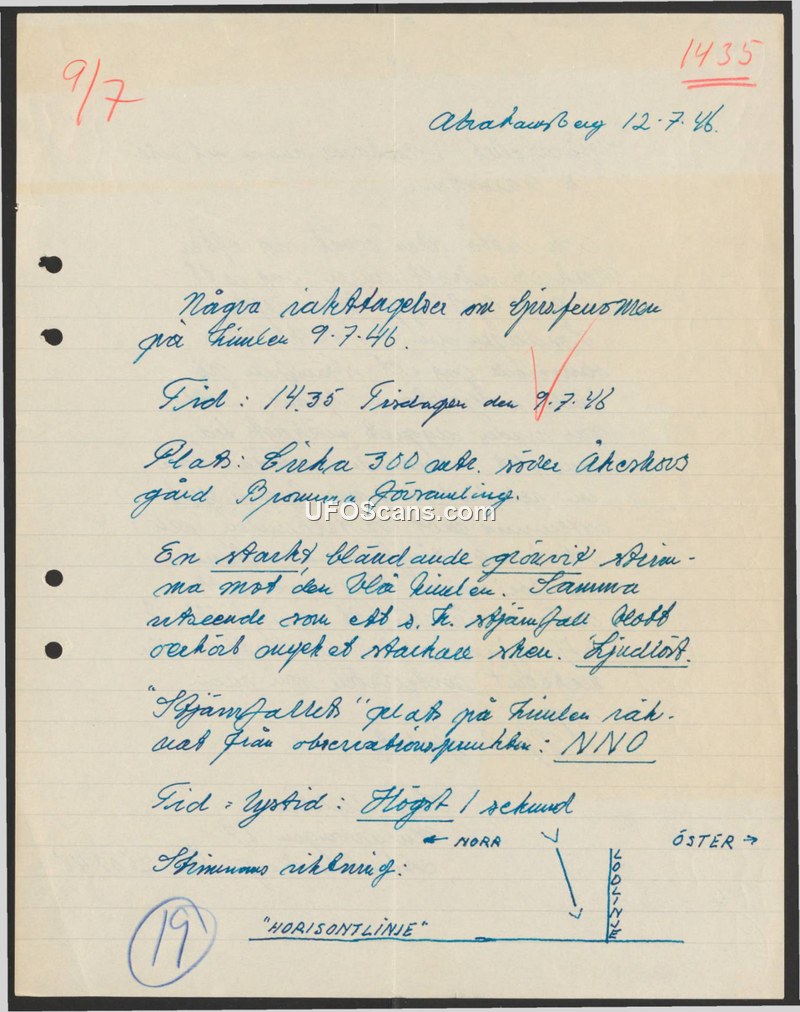 9/7
1435
Abrahamsberg 12.7.46.
Några iakttagelser om ljusfenomen
på himlen 9.7.46.
Tid: 14.35 Tisdagen den 9.7.46
Plats: Cirka 300 mtr. söder Åkeshovs
gård Bromma församling.
En starkt, bländande grönvit strim-
ma mot den blå himlen. Samma
utseende som ett s.k. stjärnfall blott
oerhört mycket starkare sken. Ljudlöst.
"Stjärnfallets" plats på himlen räk-
nat från observationspunkten: NNO
Tid = lystid: Högst 1 sekund
← NORR ÖSTER →
Strimmans riktning:
LODLINJE
"HORISONTLINIE"
19
UFOScans.com